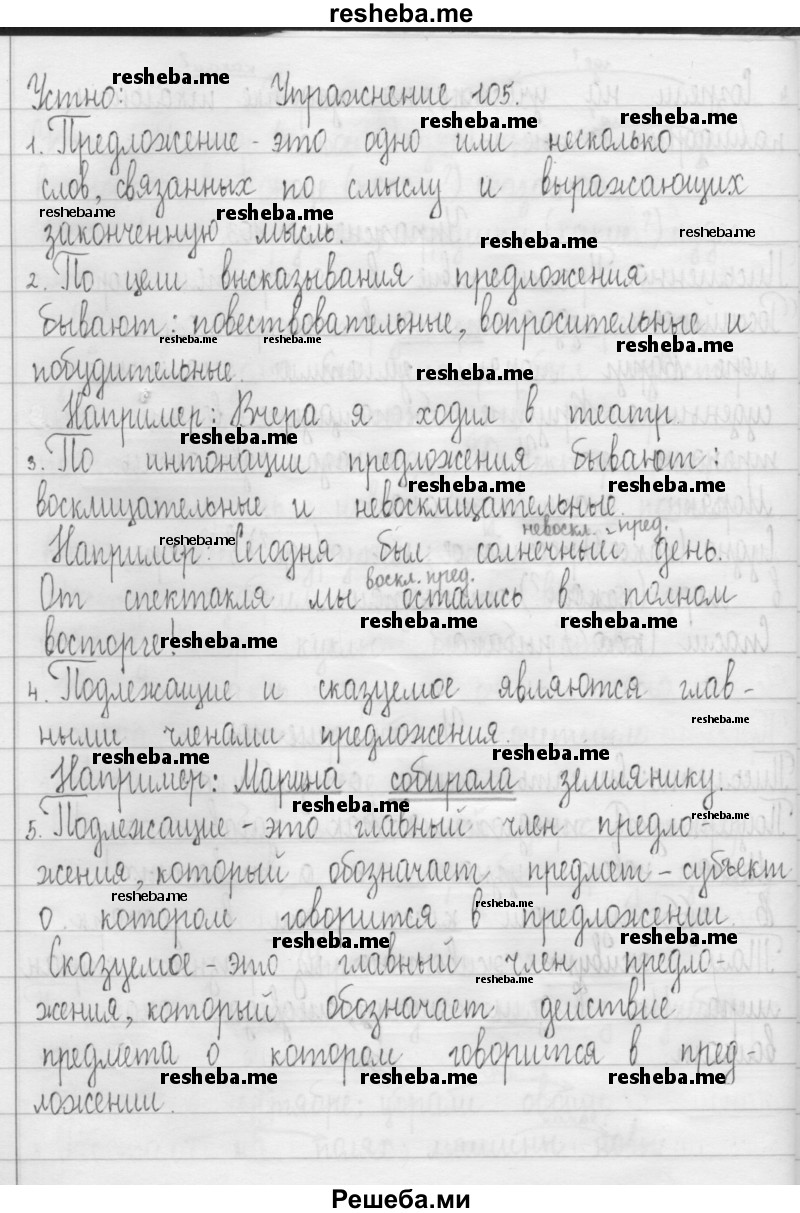 resheba.me
Устно: Упражнение 105.
1. Предложение - это одно или несколько
слов, связанных по смыслу и выражающих
законченную мысль.
2. По цели высказывания предложения
бывают: повествовательные, вопросительные и
побудительные.
Например: Вчера я ходил в театр.
3. По интонации предложения бывают:
восклицательные и невосклицательные.
невоскл. пред.
Например: Сегодня был солнечный день.
воскл. пред.
От спектакля мы остались в полном
восторге!
4. Подлежащие и сказуемое являются глав-
ными членами предложения.
Например: Марина собирала землянику.
5. Подлежащие - это главный член предло-
жения, который обозначает предмет - субъект
о котором говорится в предложении.
Сказуемое - это главный член предло-
жения, который обозначает действие
предмета о котором говорится в пред-
ложении.
Решеба.ми